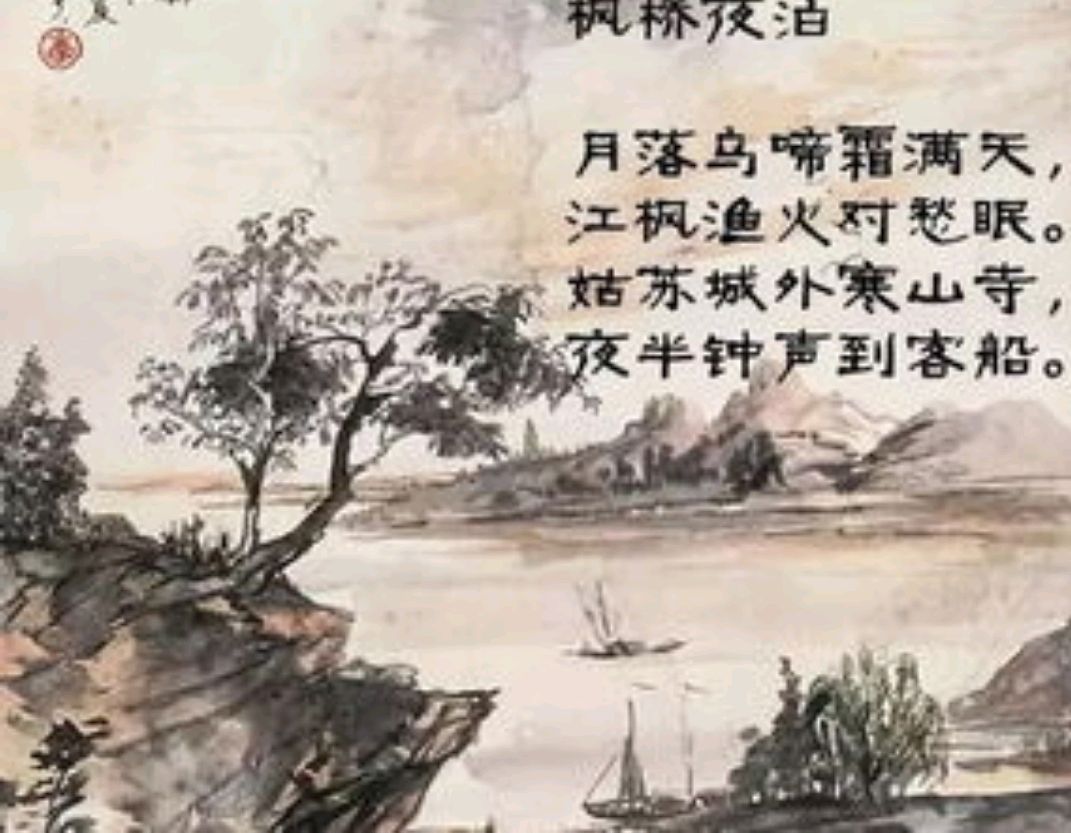 枫桥夜泊
月落乌啼霜满天，
江枫渔火对愁眠。
姑苏城外寒山寺，
夜半钟声到客船。